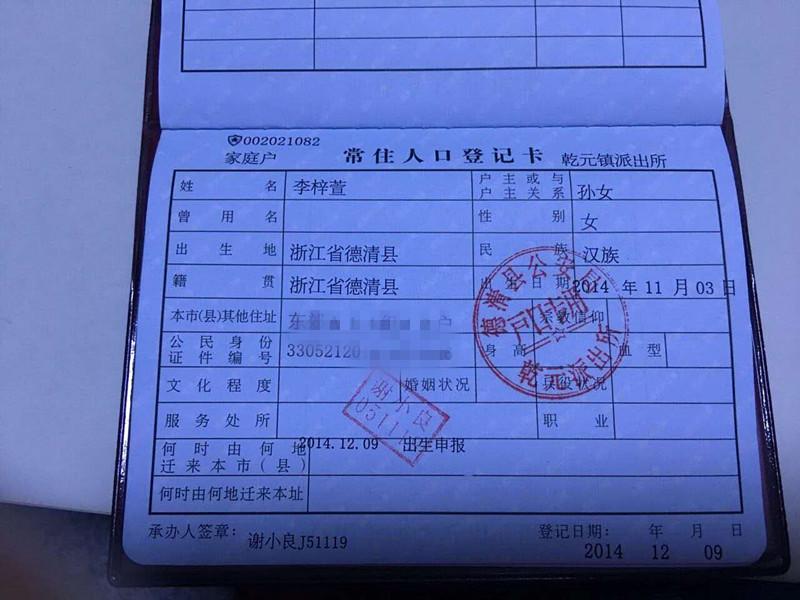 002021082
家庭户 常住人口登记卡 乾元镇派出所
姓名 李梓萱 户主或与户主关系 孙女
曾用名 性别 女
出生地 浙江省德清县 民族 汉族
籍贯 浙江省德清县 出生日期 2014年11月03日
本市(县)其他住址 宗教信仰
公民身份证件编号 33052120 身高 血型
文化程度 婚姻状况 兵役状况
服务处所 职业
何时由何地迁来本市(县) 2014.12.09 出生申报
何时由何地迁来本址
承办人签章: 谢小良J51119 登记日期: 2014年12月09日
德清县公安局
户口专用
乾元派出所
谢小良